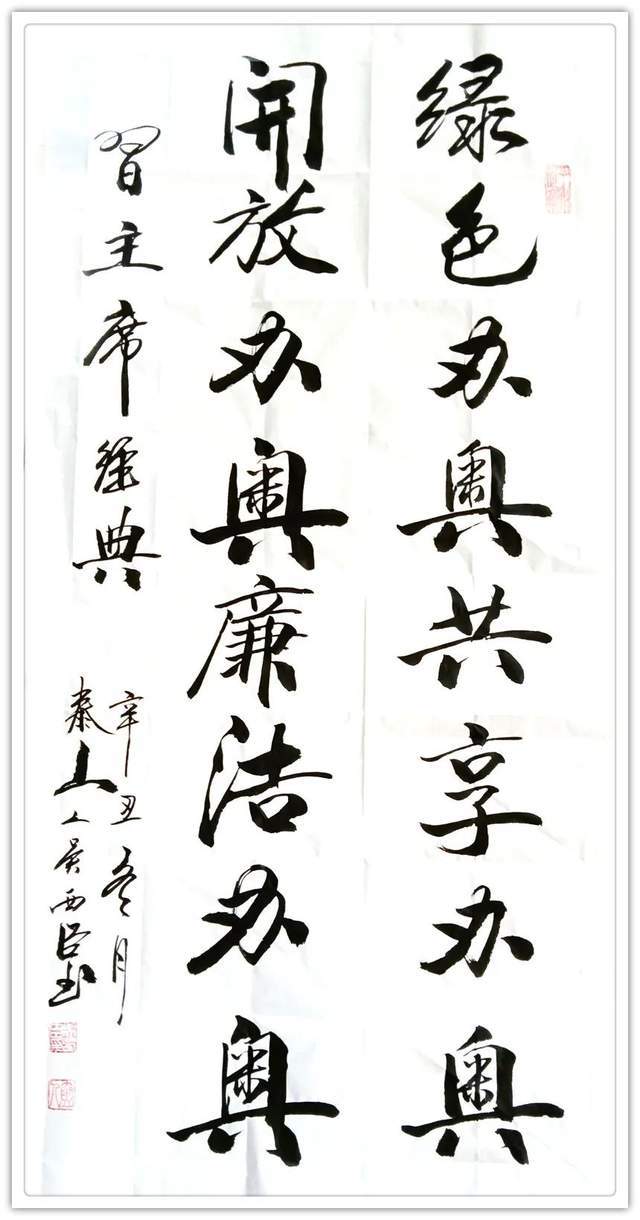 绿色办奥共享办奥
開放办奥廉洁办奥
習主席經典
辛丑冬月
泰山人吴西臣书